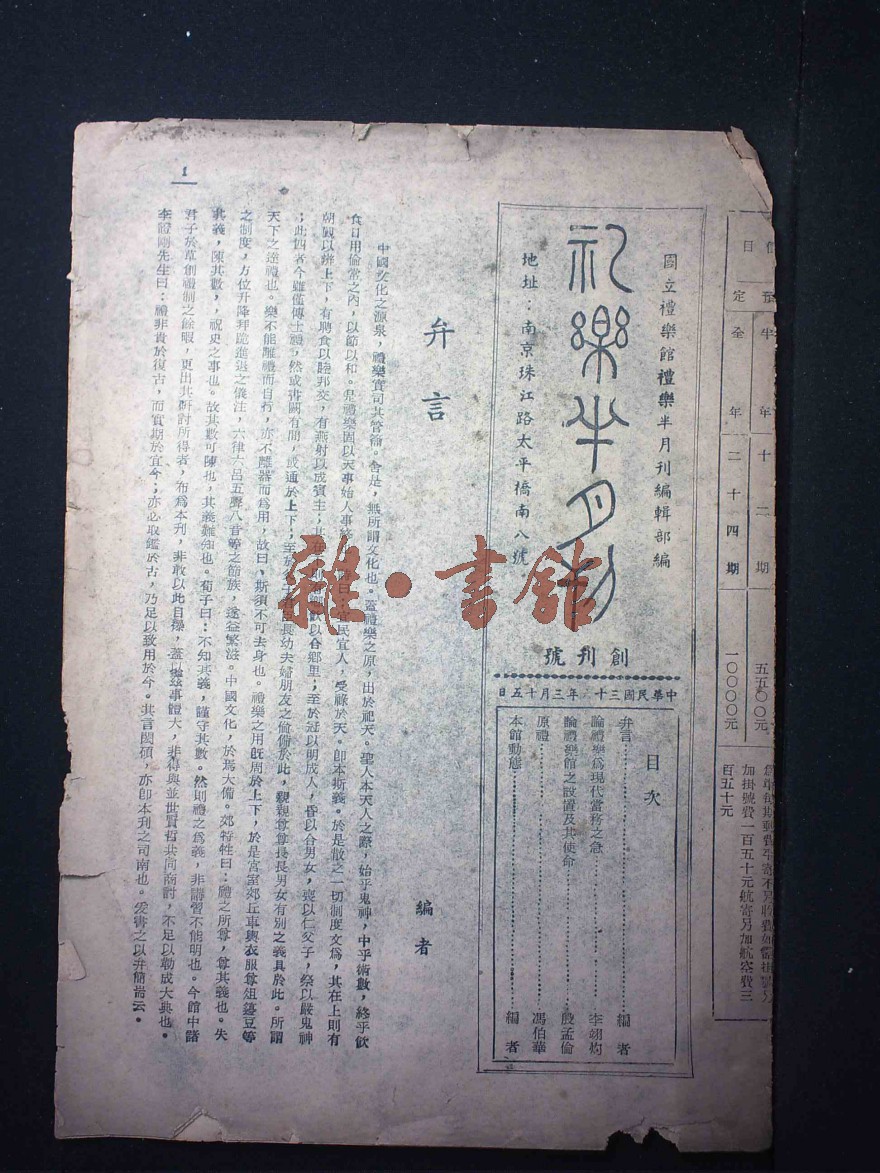 價目
預定
半年
十二期
五五〇〇元
全年
二十四期
一〇〇〇〇元
加掛號費一百五十元航寄另加航空費三
百五十元
國立禮樂館禮樂半月刊編輯部編
礼樂半月刊
地址：南京珠江路太平橋南八號
創刊號
中華民國三十 年三月十五日
目次
弁言 編者
論禮樂為現代當務之急 李翊灼
論禮樂館之設置及其使命 殷孟倫
原禮 馮伯華
本館動態 編者
弁言
編者
中國文化之源泉，禮樂實司其管籥。舍是，無所謂文化也。蓋禮樂之原，出於祀天。聖人本天人之際，始乎鬼神，中乎術數，終乎飲
食日用倫常之內，以節以和。是禮樂固以天事始人事終 宜民宜人，受祿於天。卽本斯義。於是散之一切制度文為，其在上則有
朝覲以辨上下，有聘食以睦邦交，有燕射以成賓主；其在 則有 飲以合鄉里；至於冠以明成人，昏以合男女，喪以仁父子，祭以嚴鬼神
；此四者今雖僅傳士禮，然或書闕有間，或通於上下；至於 長幼夫婦朋友之倫備於此，親親尊尊長長男女有別之義具於此。所謂
天下之達禮也。樂不能離禮而自行，亦不離器而為用，故曰、斯須不可去身也。禮樂之用旣周於上下，於是宮室郊丘車輿衣服尊俎籩豆等
之制度，方位升降拜跪進退之儀注，六律六呂五聲八音等之節族，遂益繁滋。中國文化，於焉大備。郊特牲曰：禮之所尊，尊其義也。失
其義，陳其數，，祝史之事也。故其數可陳也，其義難知也。荀子曰：不知其義，謹守其數。然則禮之為義，非講習不能明也。今館中諸
君子於草創禮制之餘暇，更出其研討所得者，布為本刊，非敢以此自操，蓋以茲事體大，非得與並世賢哲共同商討，不足以勒成大典也。
李證剛先生曰：禮非貴於復古，而實期於宜今；亦必取鑑於古，乃足以致用於今。其言閎碩，亦卽本刊之司南也。爰書之以弁簡耑云。
1
雜·書館